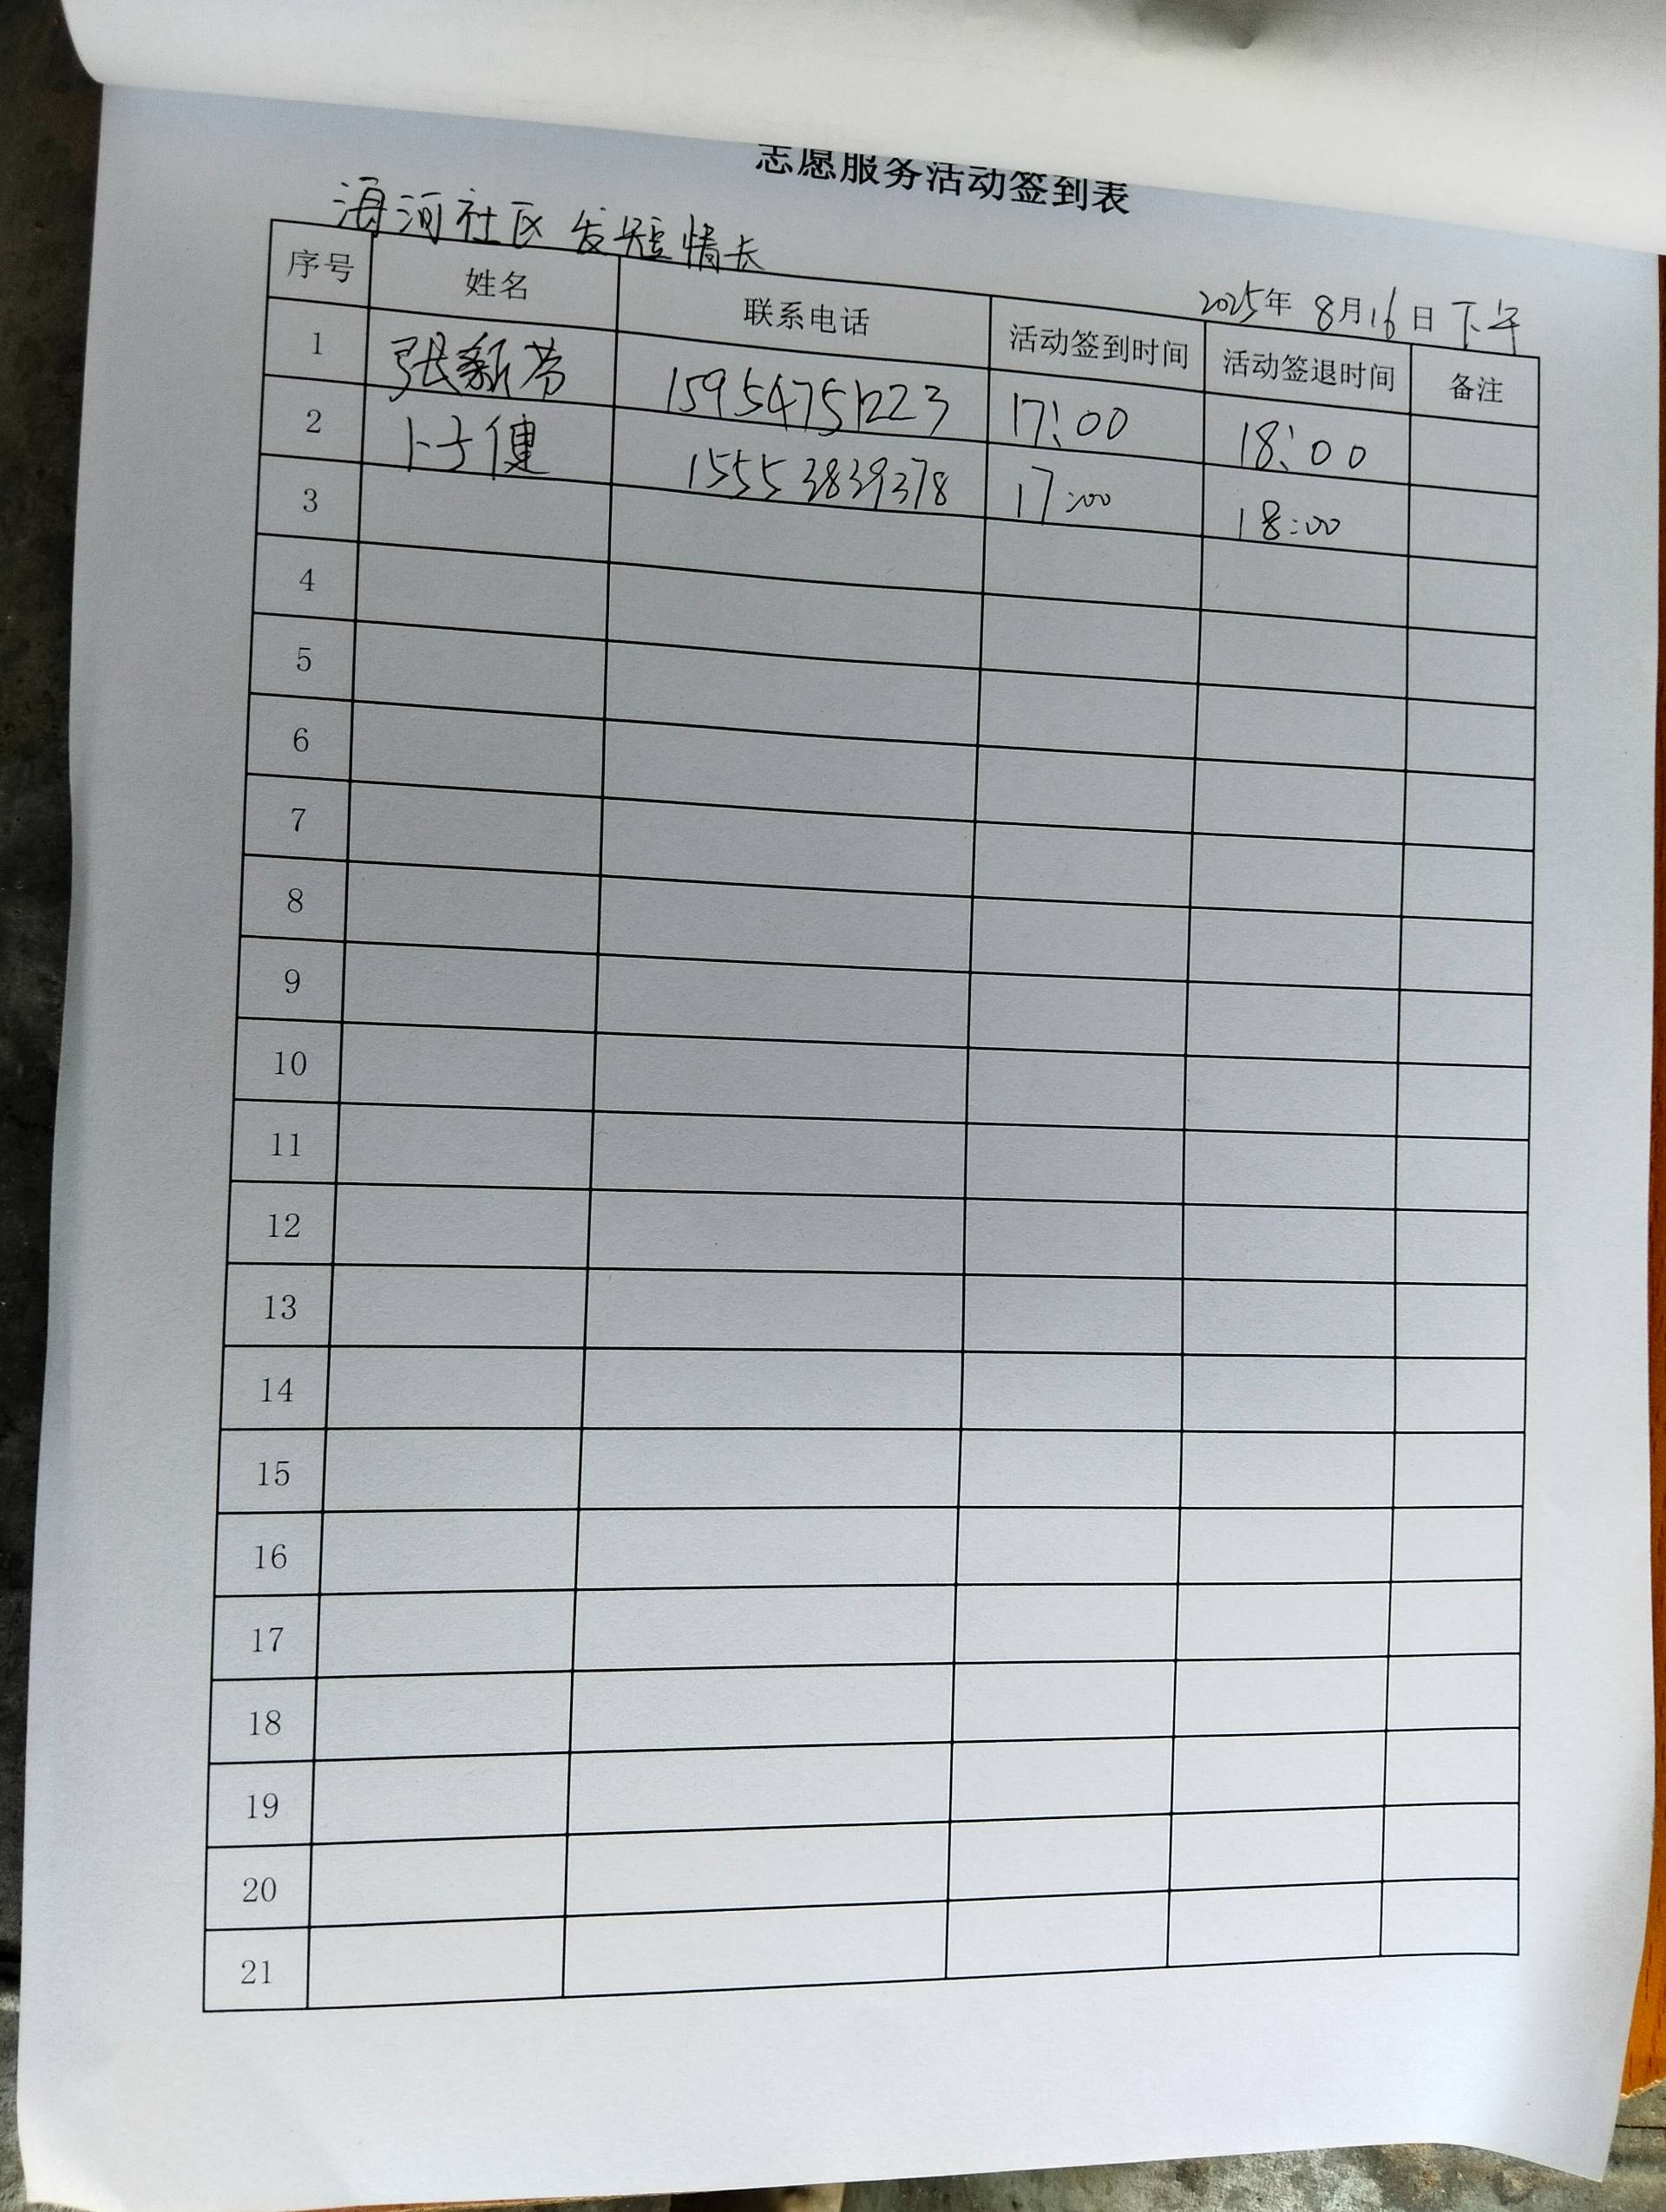 志愿服务活动签到表
海河社区发短情长
2025年 8月16日 下午
序号 姓名 联系电话 活动签到时间 活动签退时间 备注
1 张新芳 15954751223 17:00 18:00
2 卜士健 15553839378 17:00 18:00
3
4
5
6
7
8
9
10
11
12
13
14
15
16
17
18
19
20
21